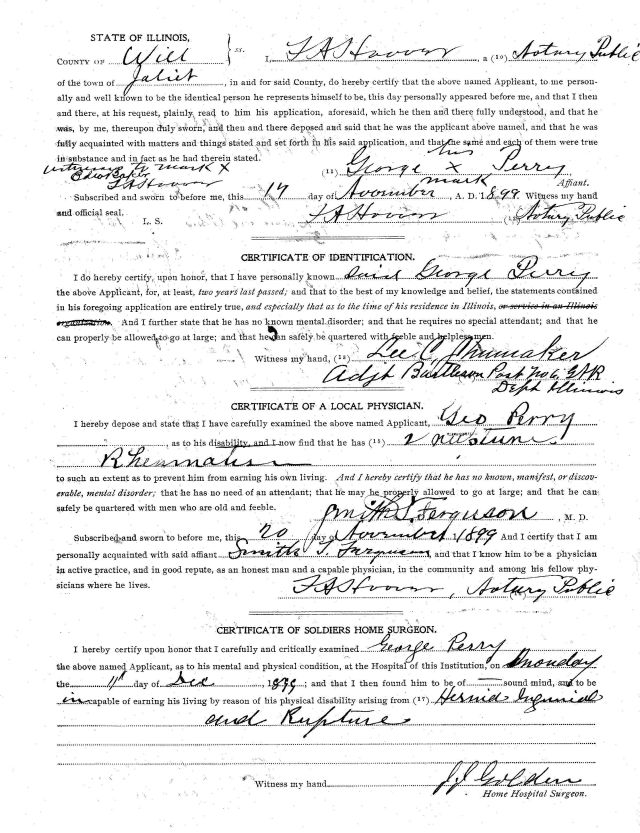 STATE OF ILLINOIS,
COUNTY OF Will } ss. I, F A S Hoover, a (10) Notary Public
of the town of Joliet, in and for said County, do hereby certify that the above named Applicant, to me person-
ally and well known to be the identical person he represents himself to be, this day personally appeared before me, and that I then
and there, at his request, plainly read to him his application, aforesaid, which he then and there fully understood, and that he
was, by me, thereupon duly sworn, and then and there deposed and said that he was the applicant above named, and that he was
fully acquainted with matters and things stated and set forth in his said application, and that the same and each of them were true
in substance and in fact as he had therein stated.
his
witnesses to mark X (11) George X Perry
mark Affiant.
Subscribed and sworn to before me, this 17 day of November, A. D. 1899 Witness my hand
and official seal.
L. S. Notary Public
CERTIFICATE OF IDENTIFICATION.
I do hereby certify, upon honor, that I have personally known said George Perry
the above Applicant, for, at least, two years last passed; and that to the best of my knowledge and belief, the statements contained
in his foregoing application are entirely true, and especially that as to the time of his residence in Illinois, or service in an Illinois
organization. And I further state that he has no known mental disorder; and that he requires no special attendant; and that he
can properly be allowed to go at large; and that he can safely be quartered with feeble and helpless men.
Witness my hand, (12) Lee C. Shumaker
Adjt Bartleson Post No 6, GAR
Dept Illinois
CERTIFICATE OF A LOCAL PHYSICIAN.
I hereby depose and state that I have carefully examined the above named Applicant, Geo Perry
, as to his disability, and I now find that he has (15)
Rheumatism
to such an extent as to prevent him from earning his own living. And I hereby certify that he has no known, manifest, or discov-
erable, mental disorder; that he has no need of an attendant; that he may be properly allowed to go at large; and that he can
safely be quartered with men who are old and feeble.
Smith T. Ferguson, M. D.
Subscribed and sworn to before me, this 20 day of November 1899 And I certify that I am
personally acquainted with said affiant Smith T. Ferguson, and that I know him to be a physician
in active practice, and in good repute, as an honest man and a capable physician, in the community and among his fellow phy-
sicians where he lives.
Notary Public
CERTIFICATE OF SOLDIERS HOME SURGEON.
I hereby certify upon honor that I carefully and critically examined George Perry
the above named Applicant, as to his mental and physical condition, at the Hospital of this Institution, on Monday
the 11 day of Dec, 1899; and that I then found him to be of sound mind, and to be
incapable of earning his living by reason of his physical disability arising from (17) Hernia Inguinal
and Rupture
Witness my hand J J Golden
Home Hospital Surgeon.